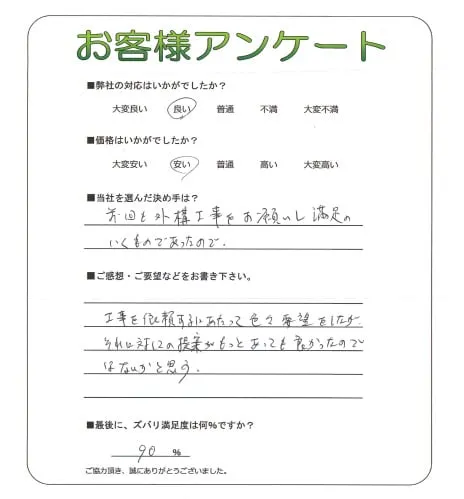 お客様アンケート
■弊社の対応はいかがでしたか？
大変良い 良い 普通 不満 大変不満
■価格はいかがでしたか？
大変安い 安い 普通 高い 大変高い
■当社を選んだ決め手は？
前回も外構工事をお願いし満足の
いくものであったので。
■ご感想・ご要望などをお書き下さい。
工事を依頼するにあたって色々要望をしたが、
それに対しての提案がもっとあっても良かったので
はないかと思う。
■最後に、ズバリ満足度は何%ですか？
90 %
ご協力頂き、誠にありがとうございました。